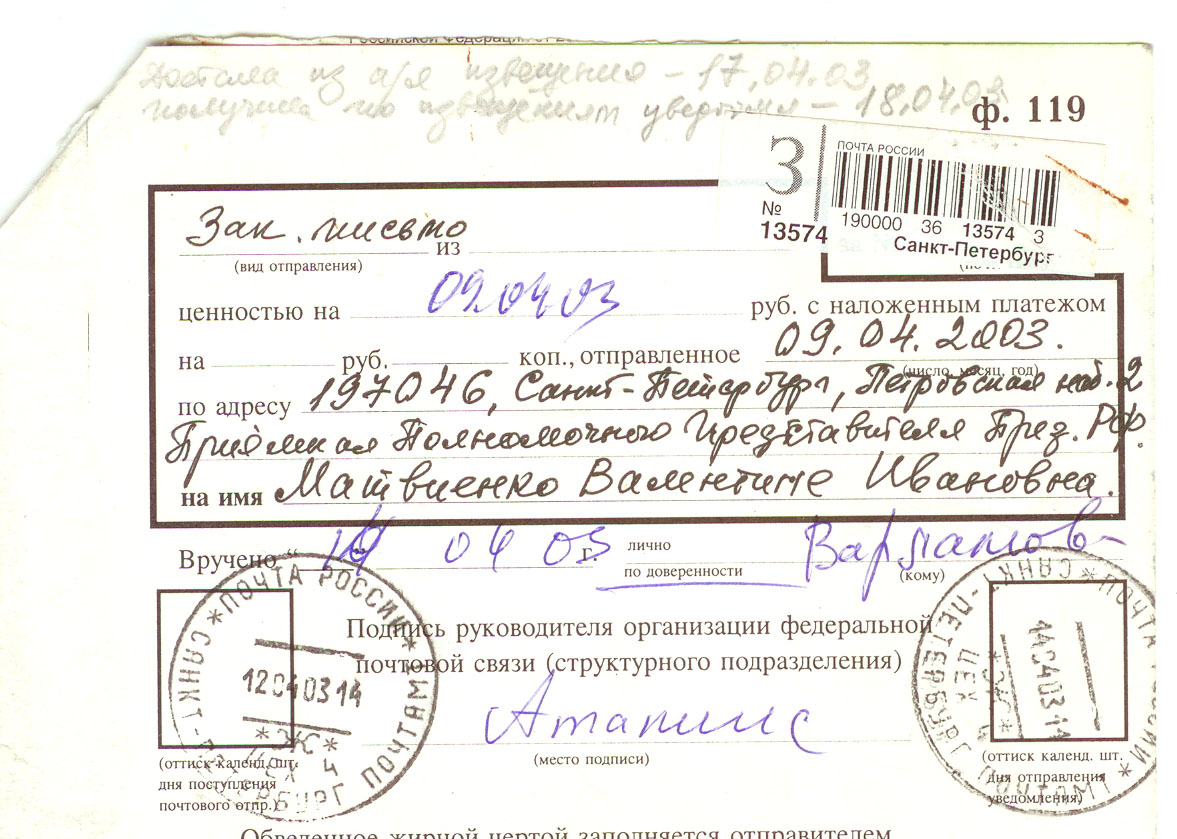 Российской Федерации от 2
Достала из а/я извещения – 17.04.03
получила по извещениям уведомл – 18.04.03
ф. 119
З
ПОЧТА РОССИИ
№ 13574
190000 36 13574 3
Санкт-Петербург
Зак. письмо из
(вид отправления)
ценностью на 09.04.03 руб. с наложенным платежом
на руб. коп., отправленное 09.04.2003.
(число, месяц, год)
по адресу 197046, Санкт-Петербург, Петровская наб. 2
Приёмная Полномочного Представителя През. РФ.
на имя Матвиенко Валентине Ивановна.
Вручено “ 04 03 г. лично
по доверенности
(кому)
Подпись руководителя организации федеральной
почтовой связи (структурного подразделения)
(место подписи)
ПОЧТА РОССИИ
САНКТ-ПЕТЕРБУРГ ПОЧТАМТ
12 04 03 14
*ЭЖ*
ЦЕХ 4
(оттиск календ. шт.
дня поступления
почтового отпр.)
ПОЧТА РОССИИ
САНКТ-ПЕТЕРБУРГ ПОЧТАМТ
14 04 03 14
*ЭЖ*
ЦЕХ 4
(оттиск календ. шт.
дня отправления
уведомления)
Обведенное жирной чертой заполняется отправителем